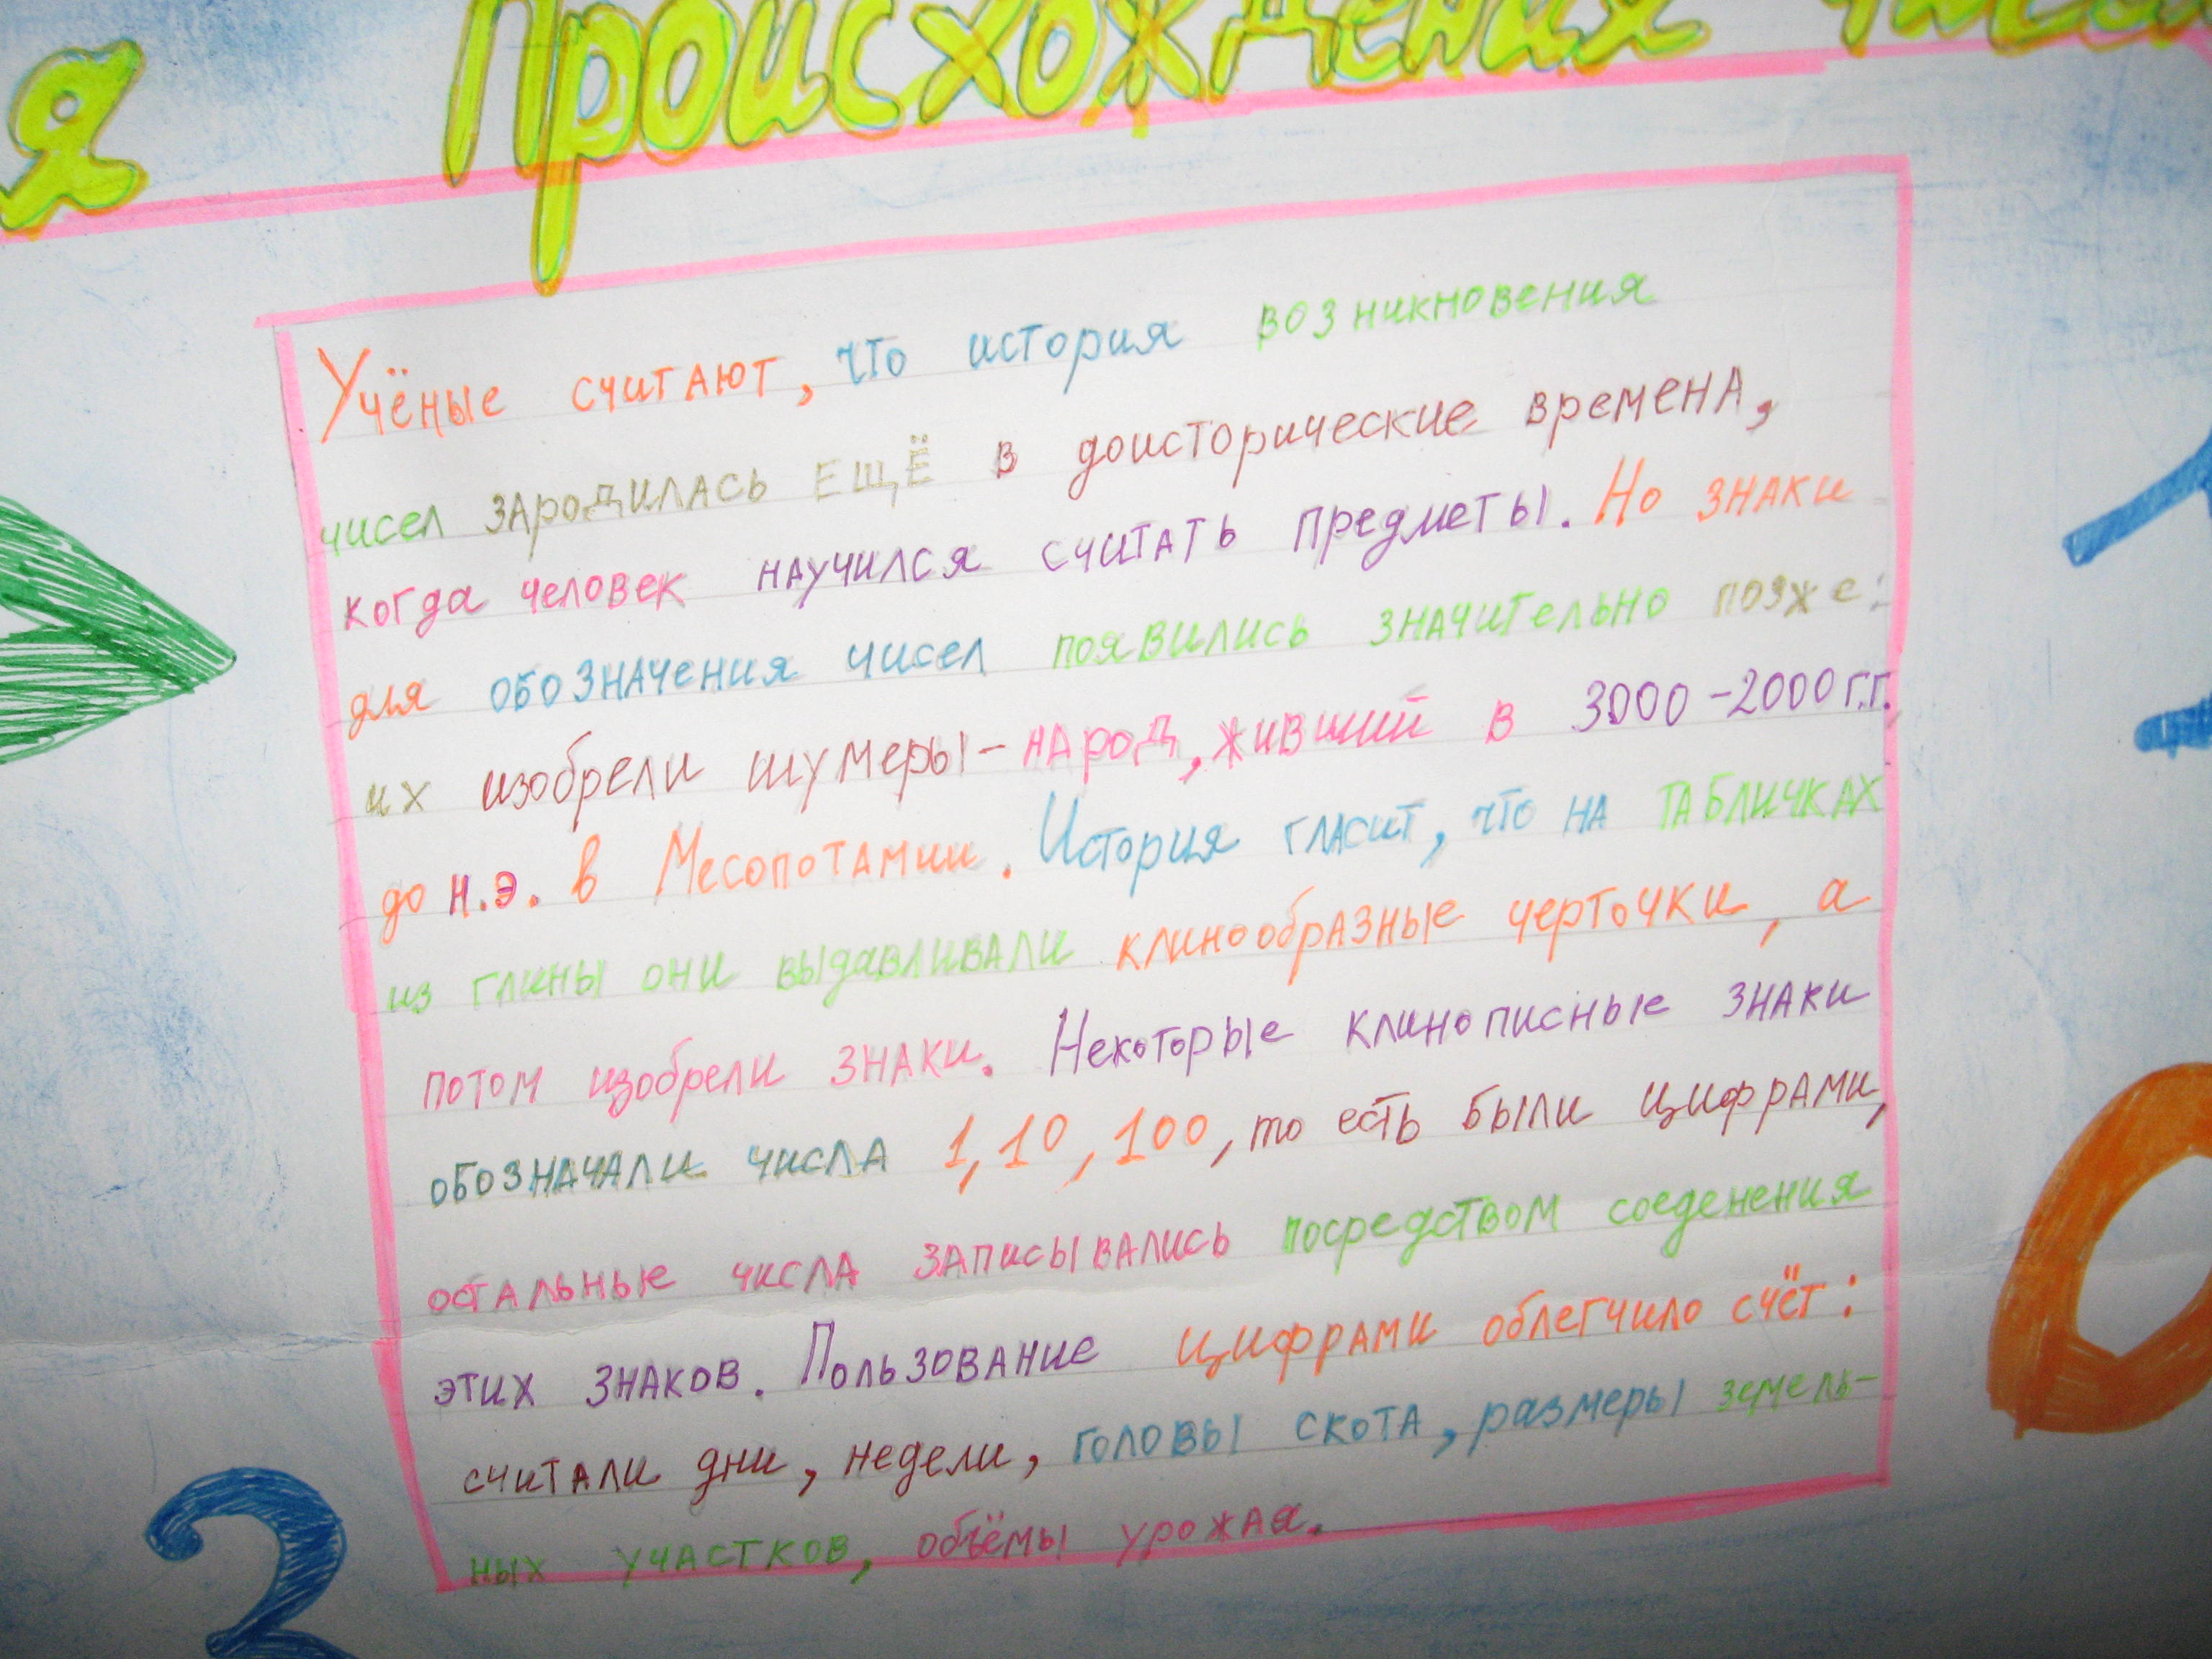 я Происхождения чисел
Учёные считают, что история возникновения
чисел зародилась ещё в доисторические времена,
когда человек научился считать предметы. Но знаки
для обозначения чисел появились значительно позже:
их изобрели шумеры - народ, живший в 3000 - 2000 г.г.
до н.э. в Месопотамии. История гласит, что на табличках
из глины они выдавливали клинообразные черточки, а
потом изобрели знаки. Некоторые клинописные знаки
обозначали числа 1, 10, 100, то есть были цифрами,
остальные числа записывались посредством соеденения
этих знаков. Пользование цифрами облегчило счёт:
считали дни, недели, головы скота, размеры земель-
ных участков, объёмы урожая.
2
0